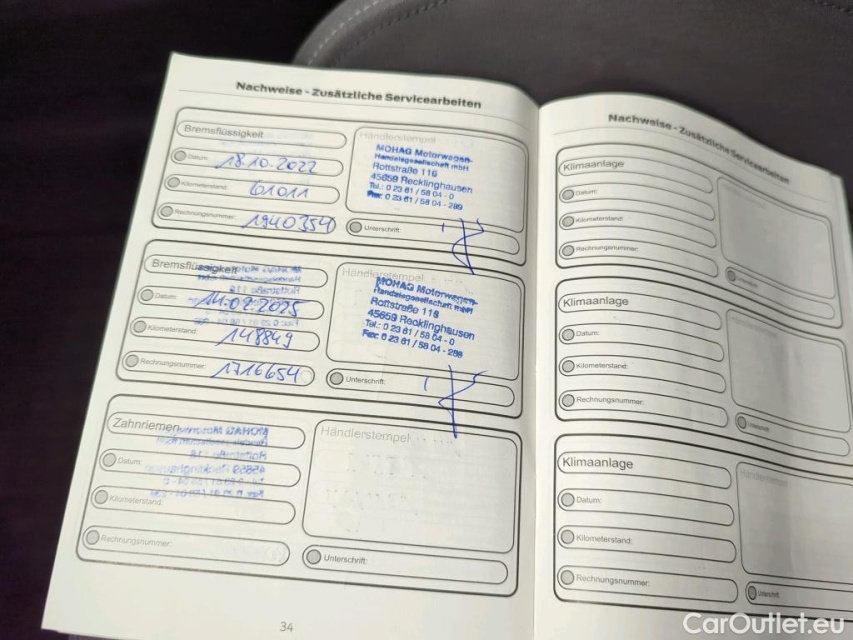 Nachweise - Zusätzliche Servicearbeiten
Bremsflüssigkeit
Datum: 18.10.2022
Kilometerstand: 61011
Rechnungsnummer: 1940354
Händlerstempel
MOHAG Motorwagen-
Handelsgesellschaft mbH
Rottstraße 116
45659 Recklinghausen
Tel.: 0 23 61 / 58 04 - 0
Fax: 0 23 61 / 58 04 - 289
Unterschrift:
Bremsflüssigkeit
Datum: 11.02.2025
Kilometerstand: 148849
Rechnungsnummer: 1716654
Händlerstempel
MOHAG Motorwagen-
Handelsgesellschaft mbH
Rottstraße 116
45659 Recklinghausen
Tel.: 0 23 61 / 58 04 - 0
Fax: 0 23 61 / 58 04 - 289
Unterschrift:
Zahnriemen
Datum:
Kilometerstand:
Rechnungsnummer:
Händlerstempel
Unterschrift:
34
Nachweise - Zusätzliche Servicearbeiten
Klimaanlage
Datum:
Kilometerstand:
Rechnungsnummer:
Händlerstempel
Unterschrift:
Klimaanlage
Datum:
Kilometerstand:
Rechnungsnummer:
Händlerstempel
Unterschrift:
Klimaanlage
Datum:
Kilometerstand:
Rechnungsnummer:
Händlerstempel
Unterschrift:
CarOutlet.eu